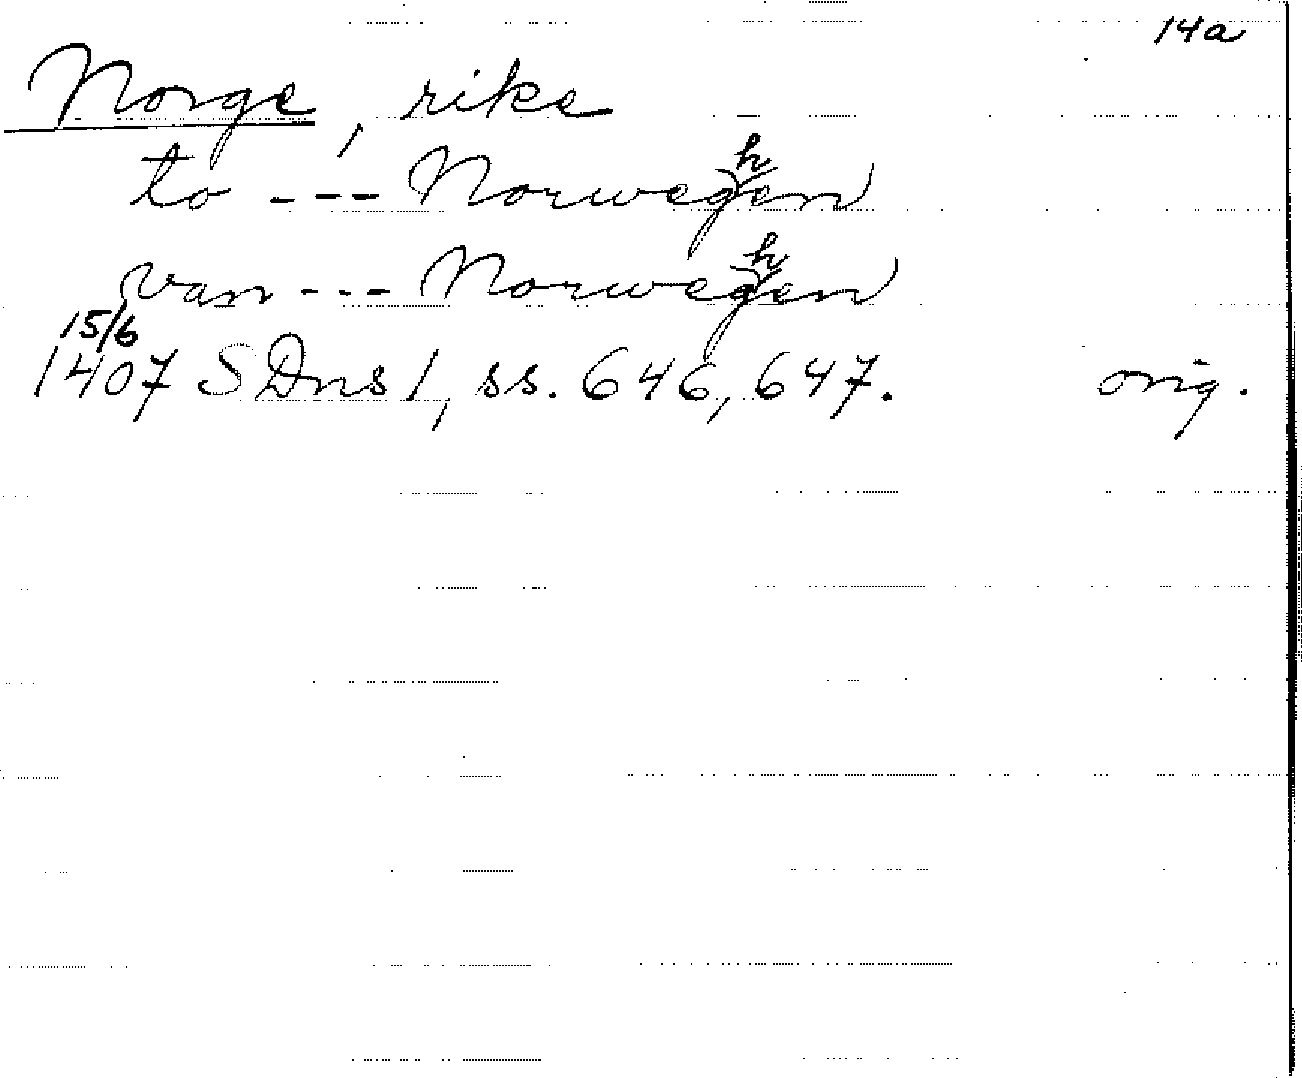 14a
Norge, rike
to --- Norweghen
van --- Norweghen
15/6
1407 SDns 1, ss. 646, 647. orig.